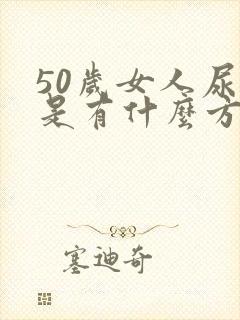 50歲女人尿
是有什麼方
塞迪奇